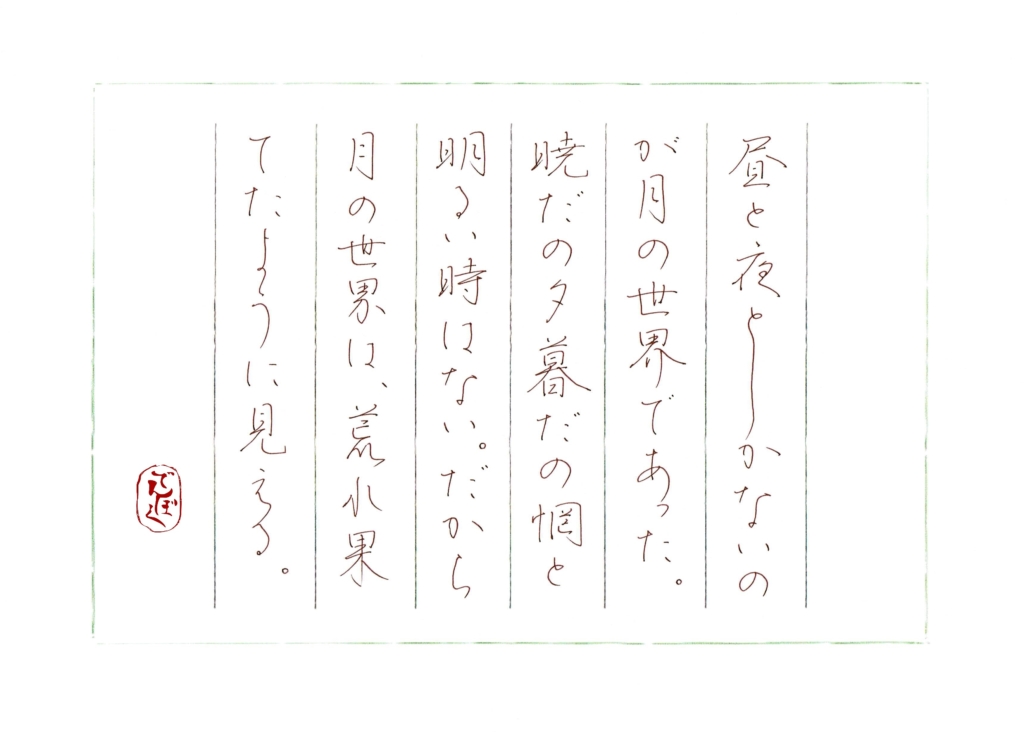 昼と夜としかないの
が月の世界であった。
暁だの夕暮だの惘と
明るい時はない。だから
月の世界は、荒れ果
てたように見える。